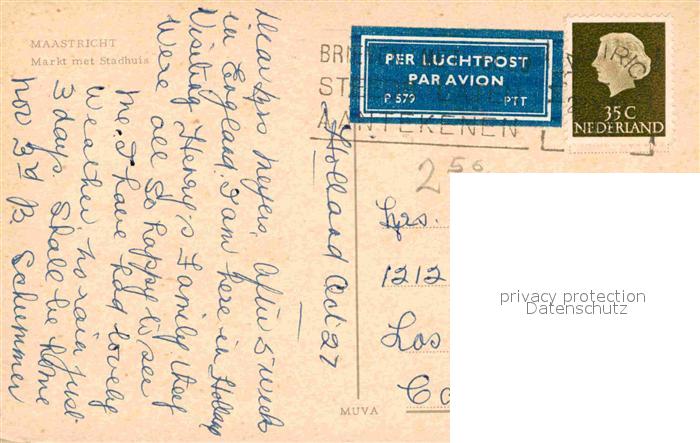 MAASTRICHT
Markt met Stadhuis
PER LUCHTPOST
PAR AVION
P 579 PTT
AANTEKENEN
35 C
NEDERLAND
2 50
Holland Oct 27
Dear Mrs Meyers, After 5 weeks
in England I am here in Holland
Visiting Henry's Family they
were all so happy to see
me. I have had lovely
weather no rain just
3 days. Shall be home
Nov 3rd B. Schemmer
Mrs.
1212
Los
Ca
MUVA
privacy protection
Datenschutz